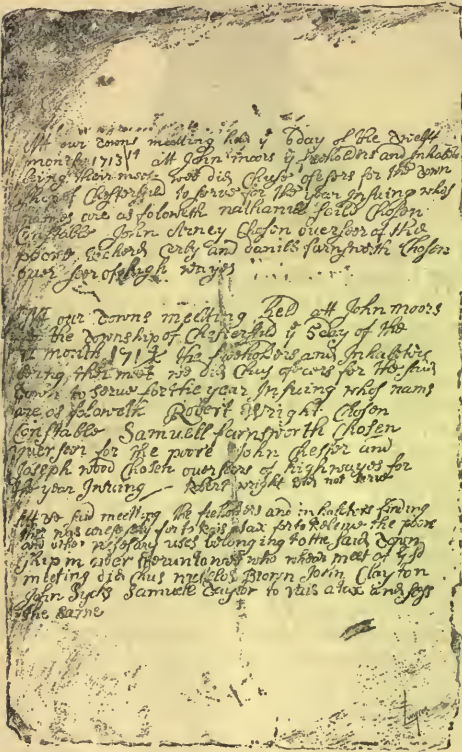 Att our Towns meetting had ye 6 day of the twelft
month 1713/14 att John moors ye freholders and Inhabit
being their meet wee did Chuse ofesers for the Town
ship of Chesterfeild to serve for the year Insuing whos
names are as foloweth nathaniell feild Chosen
Constable John Arney Chosen overseer of the
poore Richerd Cerby and daniell farnsworth Chosen
over seer of high wayes
Att our Towns meetting held att John moors
the Township of Chesterfeild ye 5 day of the
month 171 the freeholders and Inhabiters
being ther meet we did Chus ofecers for the said
town to serve for the year Insuing whos nams
are as foloweth Robert Wright Chosen
Constable Samuell farnsworth Chosen
overseer for the poore John Chesher and
Joseph wood Chosen overseers of highwayes for
the year Insuing Robert wright did not serve
Att ye said meetting the freholders and inhabiters finding
this was nesesary for to Rais a tax for to Releive the poore
and other nesesary uses belonging to the said Town
ship who when meet att ye sd
meetting did Chus Brown John Clayton
John Sycks Samuell Taylor to Rais a tax and
the same